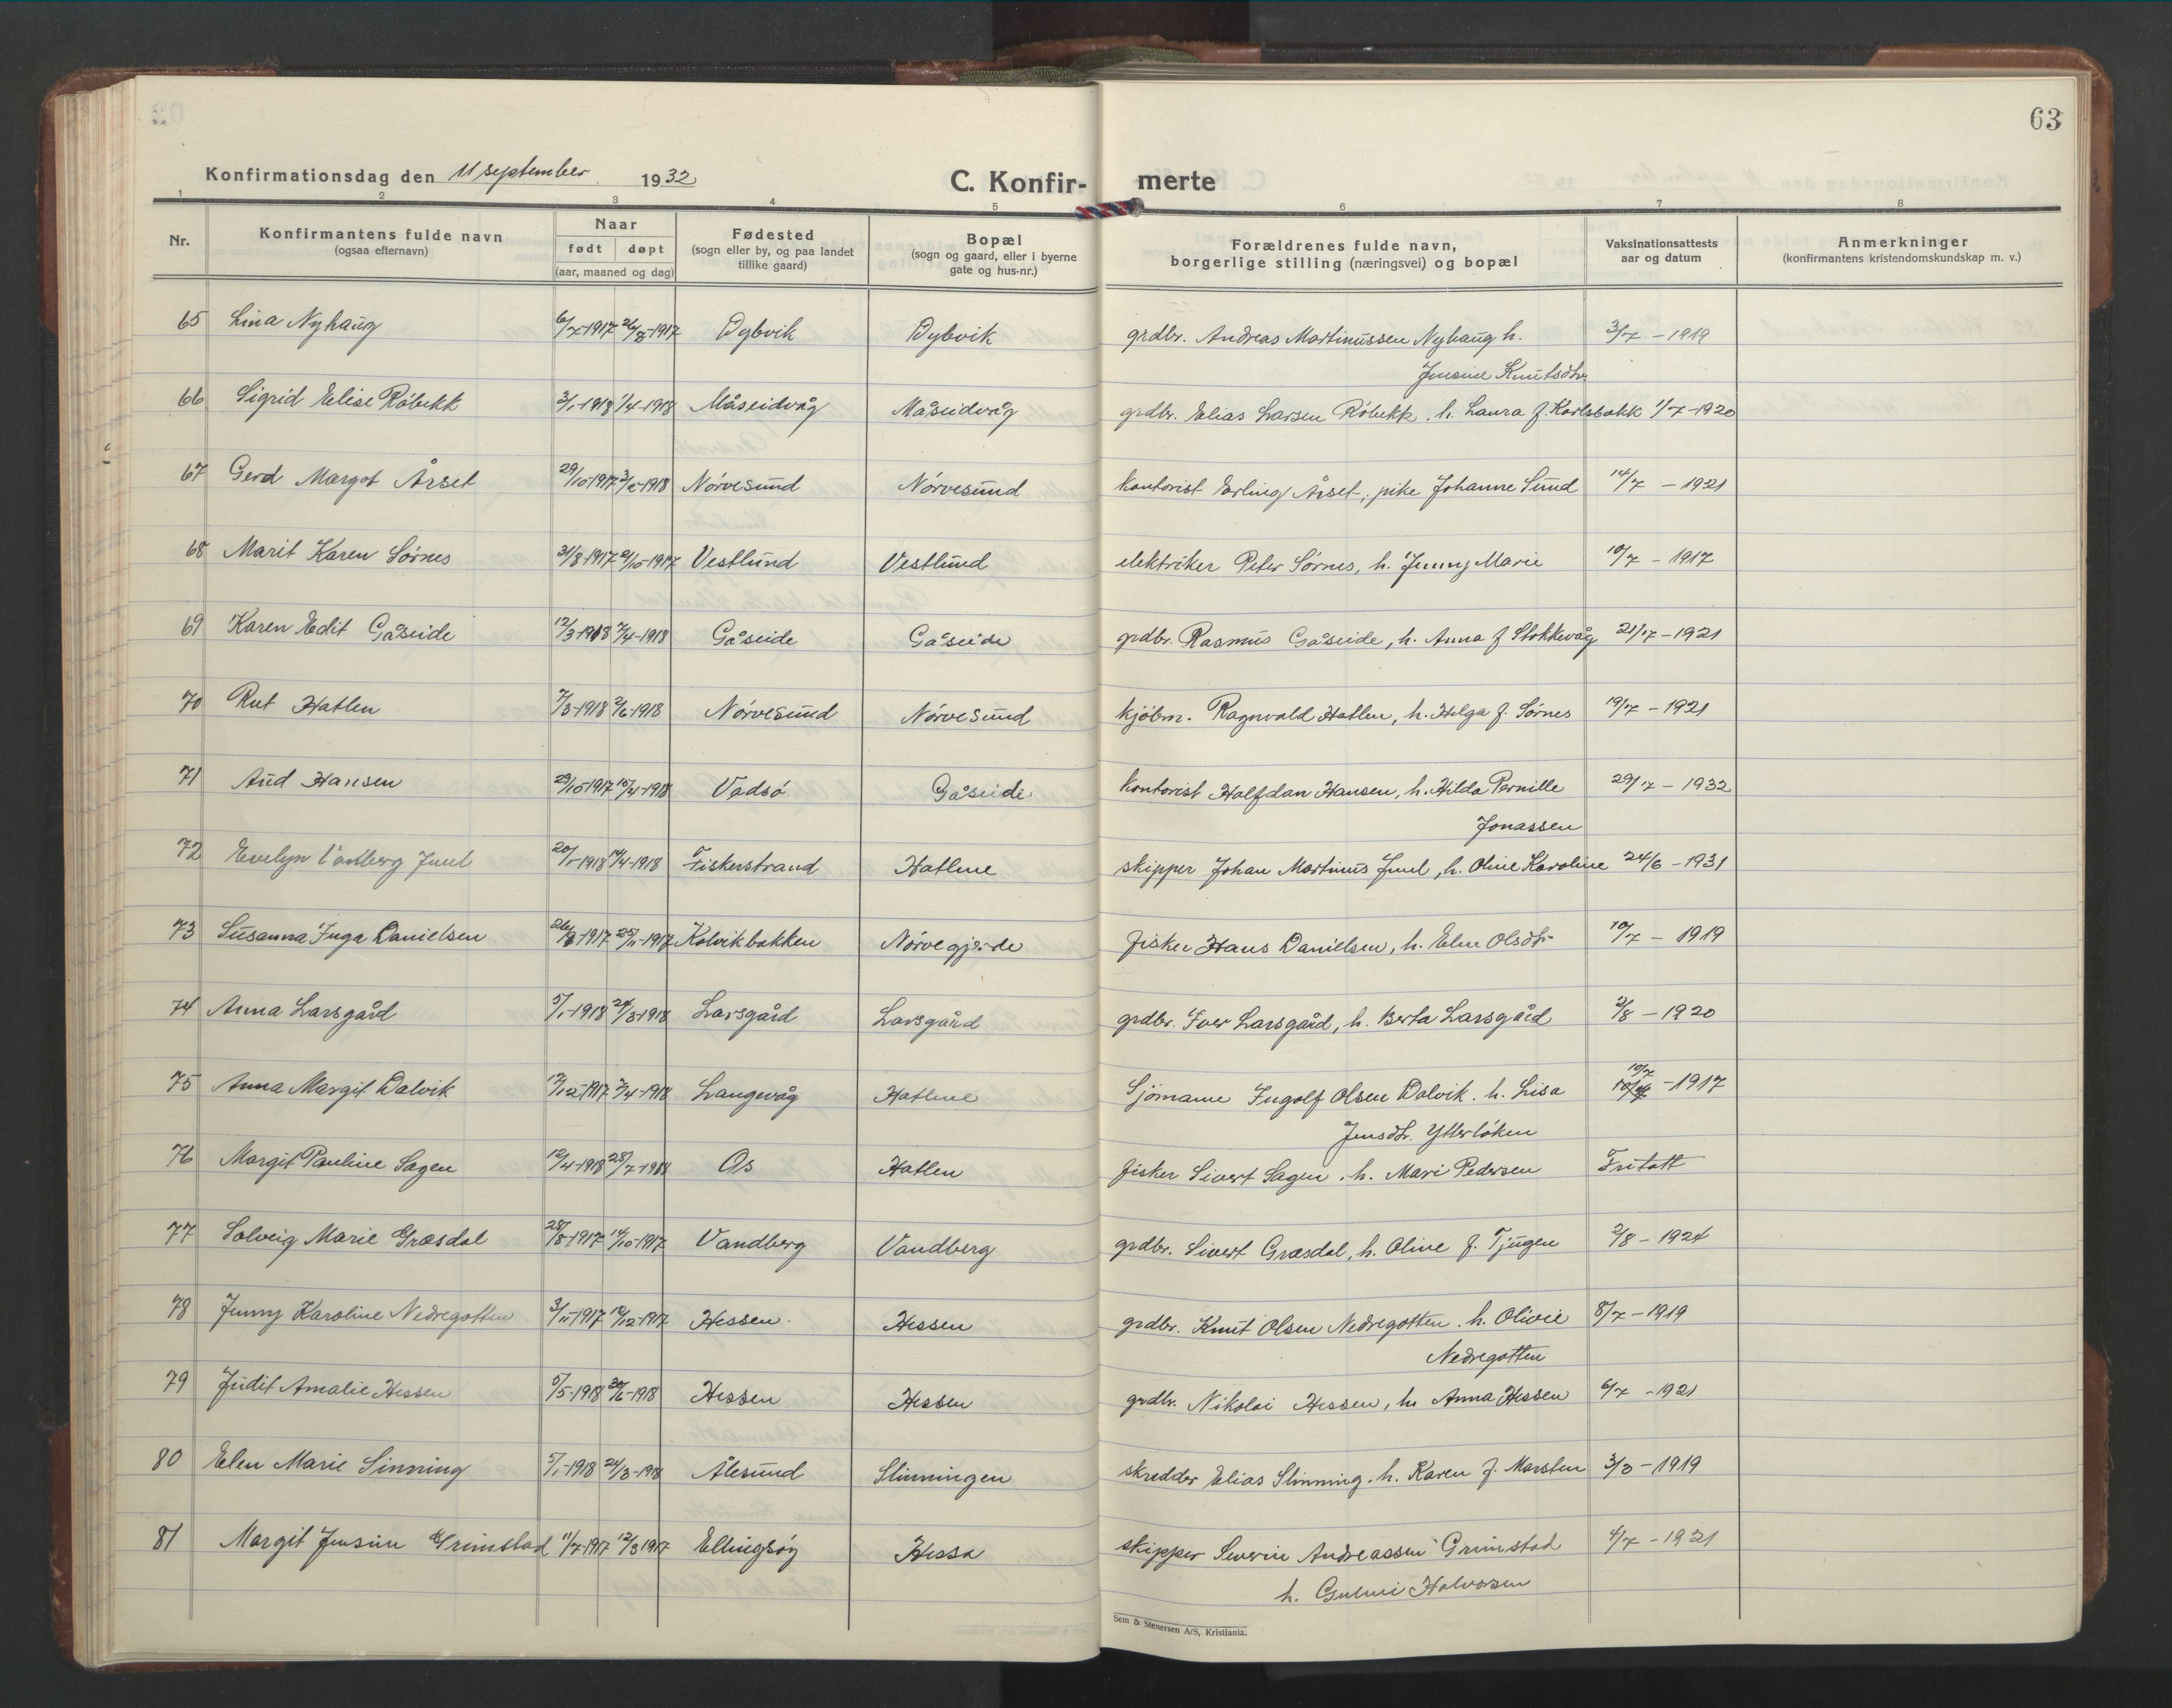 63
Konfirmationsdag den 11 september 1932
C. Konfir- merte
1 2 3 4 5 6 7 8
Nr. Konfirmantens fulde navn (ogsaa efternavn) Naar født døpt (aar, maaned og dag) Fødested (sogn eller by, og paa landet tillike gaard) Bopæl (sogn og gaard, eller i byerne gate og hus-nr.) Forældrenes fulde navn, borgerlige stilling (næringsvei) og bopæl Vaksinationsattests aar og datum Anmerkninger (konfirmantens kristendomskundskap m. v.)
65 Lina Nyhaug 6/7-1917 26/8-1917 Dybvik Dybvik grdbr. Andreas Martinussen Nyhaug h. 3/7 - 1919
Jensine Knutsdtr
66 Sigrid Elise Röbekk 3/1-1918 1/4-1918 Måseidvåg Måseidvåg grdbr. Elias Larsen Röbekk. h. Laura f. Karlsbakk 1/7-1920
67 Gerd Margot Årset 29/10-1917 1918 Nörvesund Nörvesund kontorist Erling Årset, pike Johanne Sund 14/7 - 1921
68 Marit Karen Sörnes 31/8-1917 21/10-1917 Vestlund Vestlund elektriker Peter Sörnes, h. Jenny Marie 10/7 - 1917
69 Karen Edit Gåseide 12/3-1918 7/4-1918 Gåseide Gåseide grdbr. Rasmus Gåseide, h. Anna f Stokkevåg 21/7-1921
70 Rut Hatlen 7/3-1918 2/6-1918 Nörvesund Nörvesund kjöbm. Ragnvald Hatlen, h. Helga f. Sörnes 19/7 - 1921
71 Aud Hansen 29/10-1917 15/4-1918 Vadsö Gåseide kontorist Halfdan Hansen, h. Hilda Pernille 29/7 - 1932
Jonassen
72 Evelyn Juul 20/1-1918 14/4-1918 Fiskerstrand Hatlene skipper Johan Martinus Juul, h. Oline Karoline 24/6 - 1931
73 Susanna Inga Danielsen 26/8-1917 25/11-1917 Kolvikbakken Nörvegjerde fisker Hans Danielsen, h. Elen Olsdtr 10/7 - 1919
74 Anna Larsgård 5/1-1918 24/3-1918 Larsgård Larsgård grdbr. Iver Larsgård, h. Berta Larsgård 2/8 - 1920
75 Anna Margit Dalvik 17/12-1917 7/4-1918 Langevåg Hatlene Sjömann Ingolf Olsen Dalvik. h. Lisa 10/7 -1917
Jensdtr. Ytterlöken
76 Margit Pauline Sagen 12/4-1918 28/7-1918 Os Hatlen fisker Sivert Sagen. h. Mari Pedersen Fritatt
77 Solveig Marie Græsdal 28/8-1917 14/10-1917 Vandberg Vandberg grdbr. Sivert Græsdal, h. Oline f. Tjugen 2/8 - 1924
78 Jenny Karoline Nedregotten 3/11-1917 10/12-1917 Hessen Hessen grdbr. Knut Olsen Nedregotten. h. Olivie 8/7-1919
Nedregotten
79 Judit Amalie Hessen 5/5-1918 30/6-1918 Hessen Hessen grdbr. Nikolai Hessen, h. Anna Hessen 6/7 -1921
80 Elen Marie Sinning 5/1-1918 24/3-1918 Ålesund Slinningen skredder Elias Slinning. h. Karen f. Marsten 3/3-1919
81 Margit Jensine Grimstad 11/7-1917 12/8 1917 Ellingsöy Hessa skipper Severin Andreassen Grimstad 4/7 - 1921
h. Gulmi Halvorsen
Sem & Stenersen A/S, Kristiania.